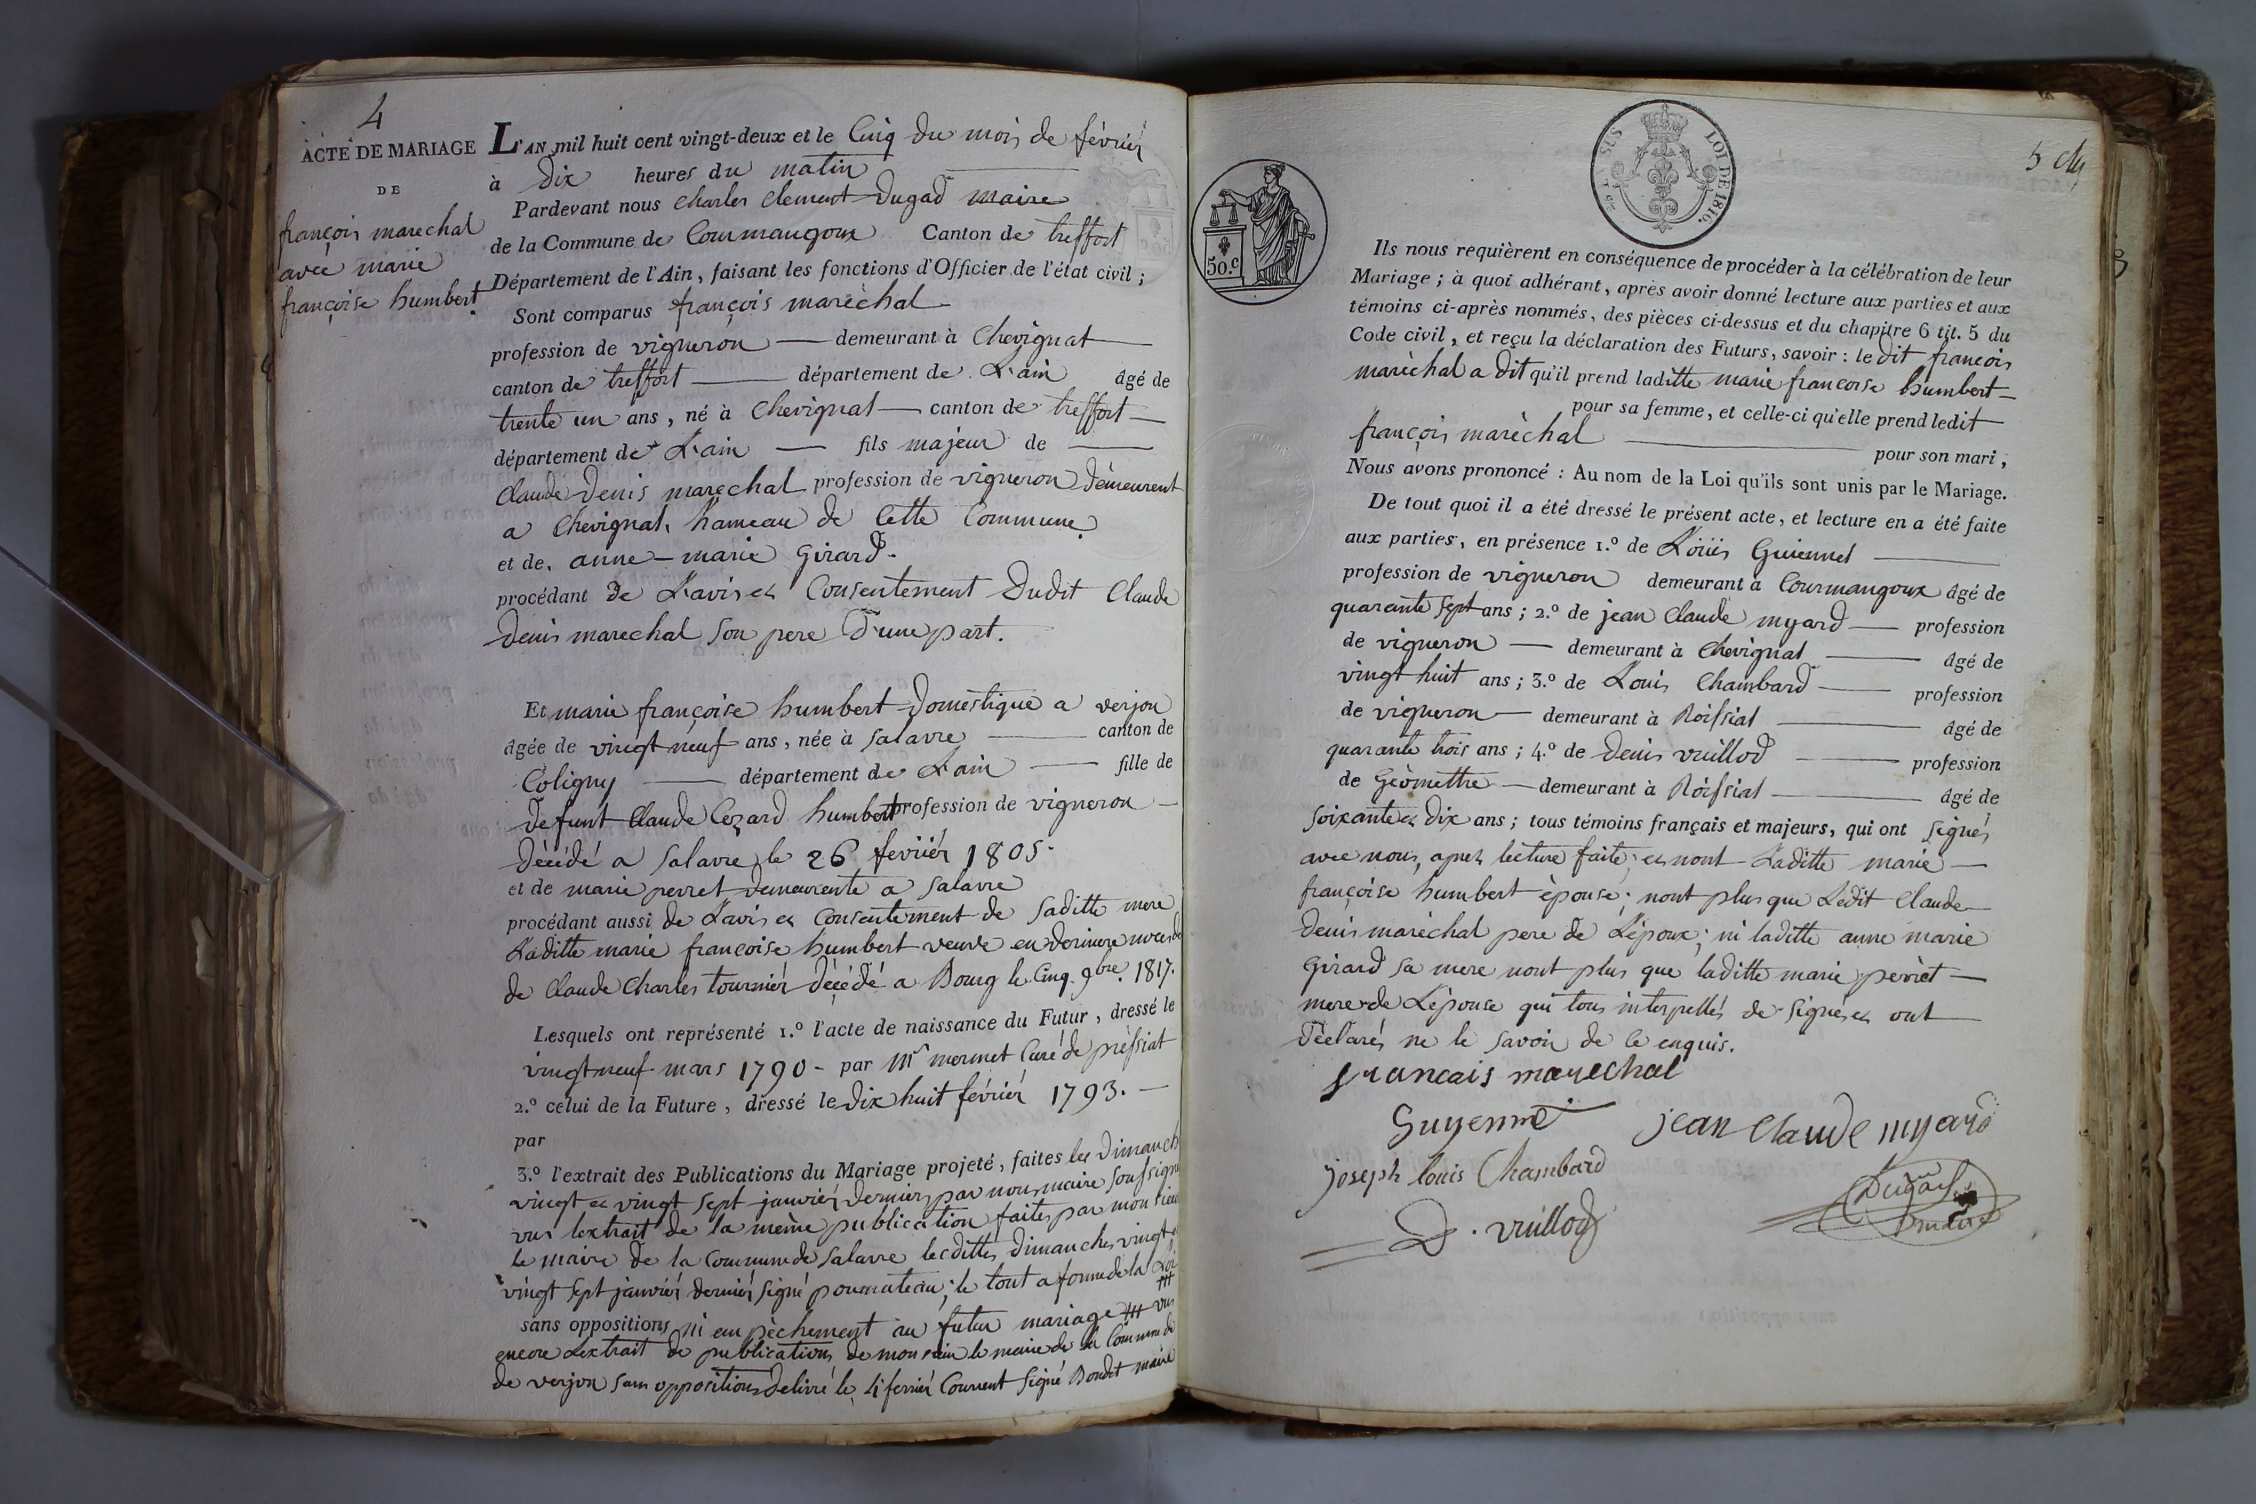 4
ACTE DE MARIAGE
DE
françois marechal
avec marie
françoise humbert.
L'AN mil huit cent vingt-deux et le Cinq du mois de février
à dix heures du matin
Pardevant nous charles Clement Dugad maire
de la Commune de Courmangoux Canton de treffort
Département de l'Ain, faisant les fonctions d'Officier de l'état civil ;
Sont comparus françois maréchal
profession de vigneron demeurant à Chevignat
canton de treffort département de L'ain âgé de
trente un ans, né à Chevignat canton de treffort
département de L'ain fils majeur de
Claude Denis marechal profession de vigneron demeurent
a Chevignat, hameau de Cette Commune
et de anne-marie Girard.
procédant de L'avis et Consentement Dudit Claude
Denis marechal son pere D'une part.
Et marie françoise humbert Domestique a verjon
âgée de vingt neuf ans, née à Salavre canton de
Coligny département de L'ain fille de
defunt Claude Cezard humbert profession de vigneron
décédé a Salavre le 26 fevriér 1805.
et de marie perret demeurente a Salavre
procédant aussi de L'avis et Consentement de Saditte mere
Laditte marie francoise humbert veuve en derniere noces de
de Claude Charles tournier décédé a Bourg le Cinq 9bre 1817.
Lesquels ont représenté 1.° l'acte de naissance du Futur, dressé le
vingt neuf mars 1790 - par Mr mermet Curé de préssiat
2.° celui de la Future, dressé le Dix huit février 1793.
par
3.° l'extrait des Publications du Mariage projeté, faites les Dimanch
vingt et vingt sept janviér derniér par nous maire soussigné
vus lextrait de la même publication faites par monsieur
Le maire de la Commune de Salavre lesdittes Dimanches vingt et
vingt sept janviér derniér signé ; le tout a forme de la Loi
sans oppositions ni empèchement au futur mariage vus
encore Lextrait de publications de monsieur le maire de la Commune de
de verjon sans oppositions delivré le 4 ferriér Courrent signé Boudet maire
SUS
LOI DE 1816.
5
50.c
Ils nous requièrent en conséquence de procéder à la célébration de leur
Mariage ; à quoi adhérant, après avoir donné lecture aux parties et aux
témoins ci-après nommés, des pièces ci-dessus et du chapitre 6 tit. 5 du
Code civil, et reçu la déclaration des Futurs, savoir : le dit francois
maréchal a dit qu'il prend laditte marie francoise humbert
pour sa femme, et celle-ci qu'elle prend ledit
françois maréchal pour son mari,
Nous avons prononcé : Au nom de la Loi qu'ils sont unis par le Mariage.
De tout quoi il a été dressé le présent acte, et lecture en a été faite
aux parties, en présence 1.° de Loüis Guiennet
profession de vigneron demeurant à Courmangoux âgé de
quarante sept ans ; 2.° de jean Claude myard profession
de vigneron demeurant à Chevignat âgé de
vingt huit ans ; 3.° de Louis Chambard profession
de vigneron demeurant à Roissiat âgé de
quarante trois ans ; 4.° de Denis vuillod profession
de Géomettre demeurant à Roissiat âgé de
soixante et dix ans ; tous témoins français et majeurs, qui ont signés
avec nous, apres lecture faite, et nont Laditte marie
françoise humbert épouse ; nont plus que Ledit Claude
Denis maréchal pere de Lépoux ; ni laditte anne marie
Girard sa mere nont plus que laditte marie perret
mere de Lépouse qui tous interpellés de signér et ont
déclarés ne le savoir de ce enquis.
francais marechal
Guyenne
jean Claude myard
joseph louis Chambard
Dugad
maire
D. vuillod